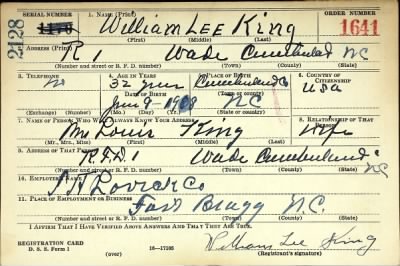 SERIAL NUMBER 1. NAME (Print) ORDER NUMBER
2128 William Lee King 1641
(First) (Middle) (Last)
2. ADDRESS (Print)
R 1 Wade Cumberland NC
(Number and street or R. F. D. number) (Town) (County) (State)
3. TELEPHONE 4. AGE IN YEARS 5. PLACE OF BIRTH 6. COUNTRY OF CITIZENSHIP
No 32 years Cumberland Co USA
DATE OF BIRTH (Town or county)
June 9 1908 NC
(Exchange) (Number) (Mo.) (Day) (Yr.) (State or country)
7. NAME OF PERSON WHO WILL ALWAYS KNOW YOUR ADDRESS 8. RELATIONSHIP OF THAT PERSON
King Wife
(Mr., Mrs., Miss) (First) (Middle) (Last)
9. ADDRESS OF THAT PERSON
R.F.D. 1 Wade Cumberland NC
(Number and street or R. F. D. number) (Town) (County) (State)
10. EMPLOYER'S NAME
Co
11. PLACE OF EMPLOYMENT OR BUSINESS
Fort Bragg N.C.
(Number and street or R. F. D. number) (Town) (County) (State)
I AFFIRM THAT I HAVE VERIFIED ABOVE ANSWERS AND THAT THEY ARE TRUE.
William Lee King
REGISTRATION CARD
D. S. S. Form 1 (over) (Registrant's signature)